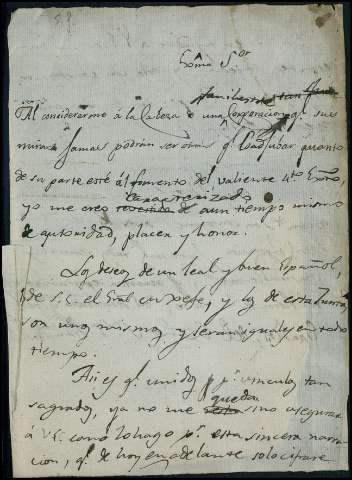 Exmo Sor
Al considerarme á la Cabeza de una Corporacion, q.e sus
miras jamas podrán ser otras q.e Coadyubar quanto
de su parte esté al fomento del valiente 4to Exto,
caracterizado
yo me creo revestido de aun tiempo mismo
de autoridad, placer y honor.
Los deseos de un leal y buen Español,
de S.E. el Gral en Xefe, y los de esta Junta
son unos mismos, y serán iguales en todo
tiempo.
Asi es q.e unidos p.r vinculos tan
queda
sagrados, ya no me resta sino asegurar
á V.E. como lo hago p.r esta sincera narra-
cion, q.e de hoy en adelante solo cifrare